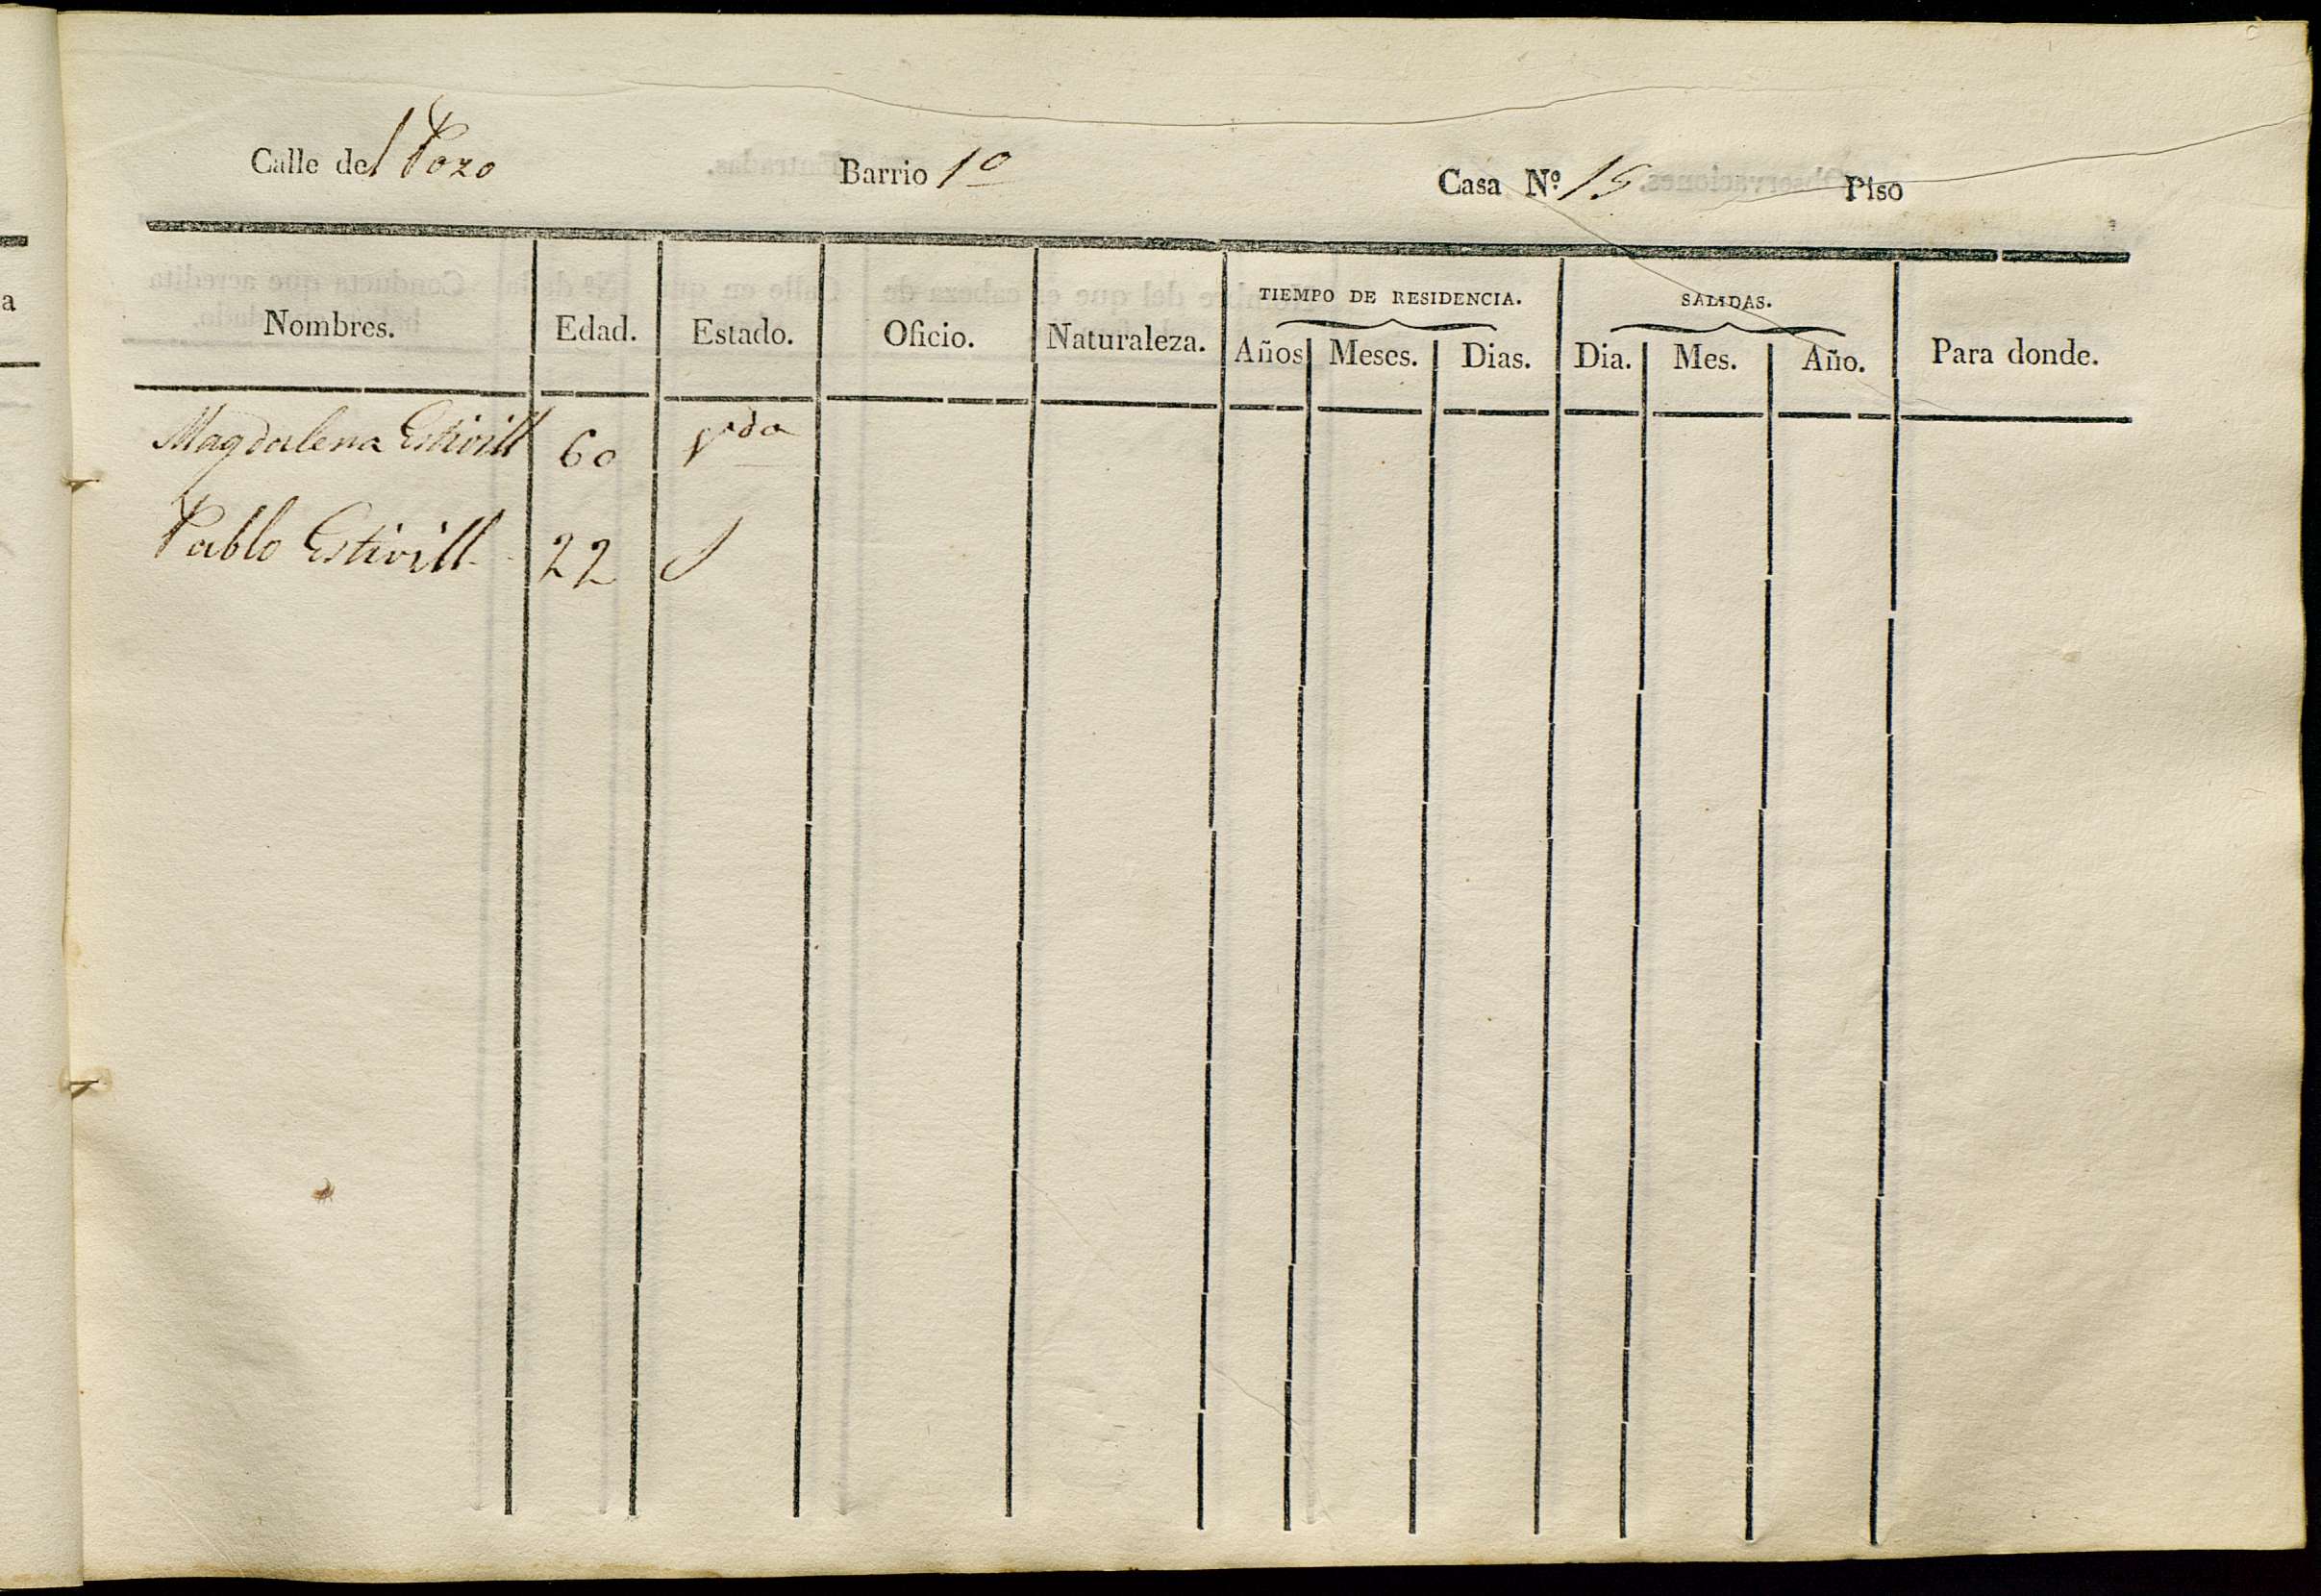 Calle del Pozo Barrio 1º Casa Nº 15 Piso
TIEMPO DE RESIDENCIA. SALIDAS.
Nombres. Edad. Estado. Oficio. Naturaleza. Años Meses. Dias. Dia. Mes. Año. Para donde.
Magdalena Estivill 60 Vda
Pablo Estivill 22 S